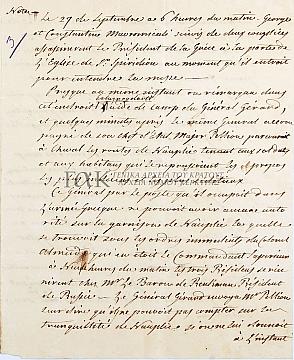 Note
Le 27 de Septembre a 6 heures du matin, Georges
et Constantin Mavromicali suivis de deux
assassinerent le Président de la Grèce à la porte de
l'Eglise de St. Spiridion au moment qu'il entrait
pour entendre la messe
Presque au même instant on remarqua dans
cet endroit de camp du Général Gérard
et quelques minutes après le même Général accom
pagné de son chef d'Etat Major Pellion parcourait
à cheval les routes de Nauplie tenant aux soldats
et aux habitans qui les propos
les
ΓΑΚ ΓΕΝΙΚΑ ΑΡΧΕΙΑ ΤΟΥ ΚΡΑΤΟΥΣ
Ce Général par le poste qu'il occupait dans
l'armée Grecque ne pouvait avoir aucune auto
rité sur la garnison de Nauplie laquelle
se trouvait sous les ordres immédiats du Colonel
Almeida qui en était le Commandant
à heures du matin les trois Résidens se réu
nirent chez Mr. le Baron de Résident
de Russie — Le Général Girard envoya Mr. Pellion
leur dire qu'on ne pouvait pas compter sur la
tranquillité de Nauplie si on ne lui donnait
à l'instant